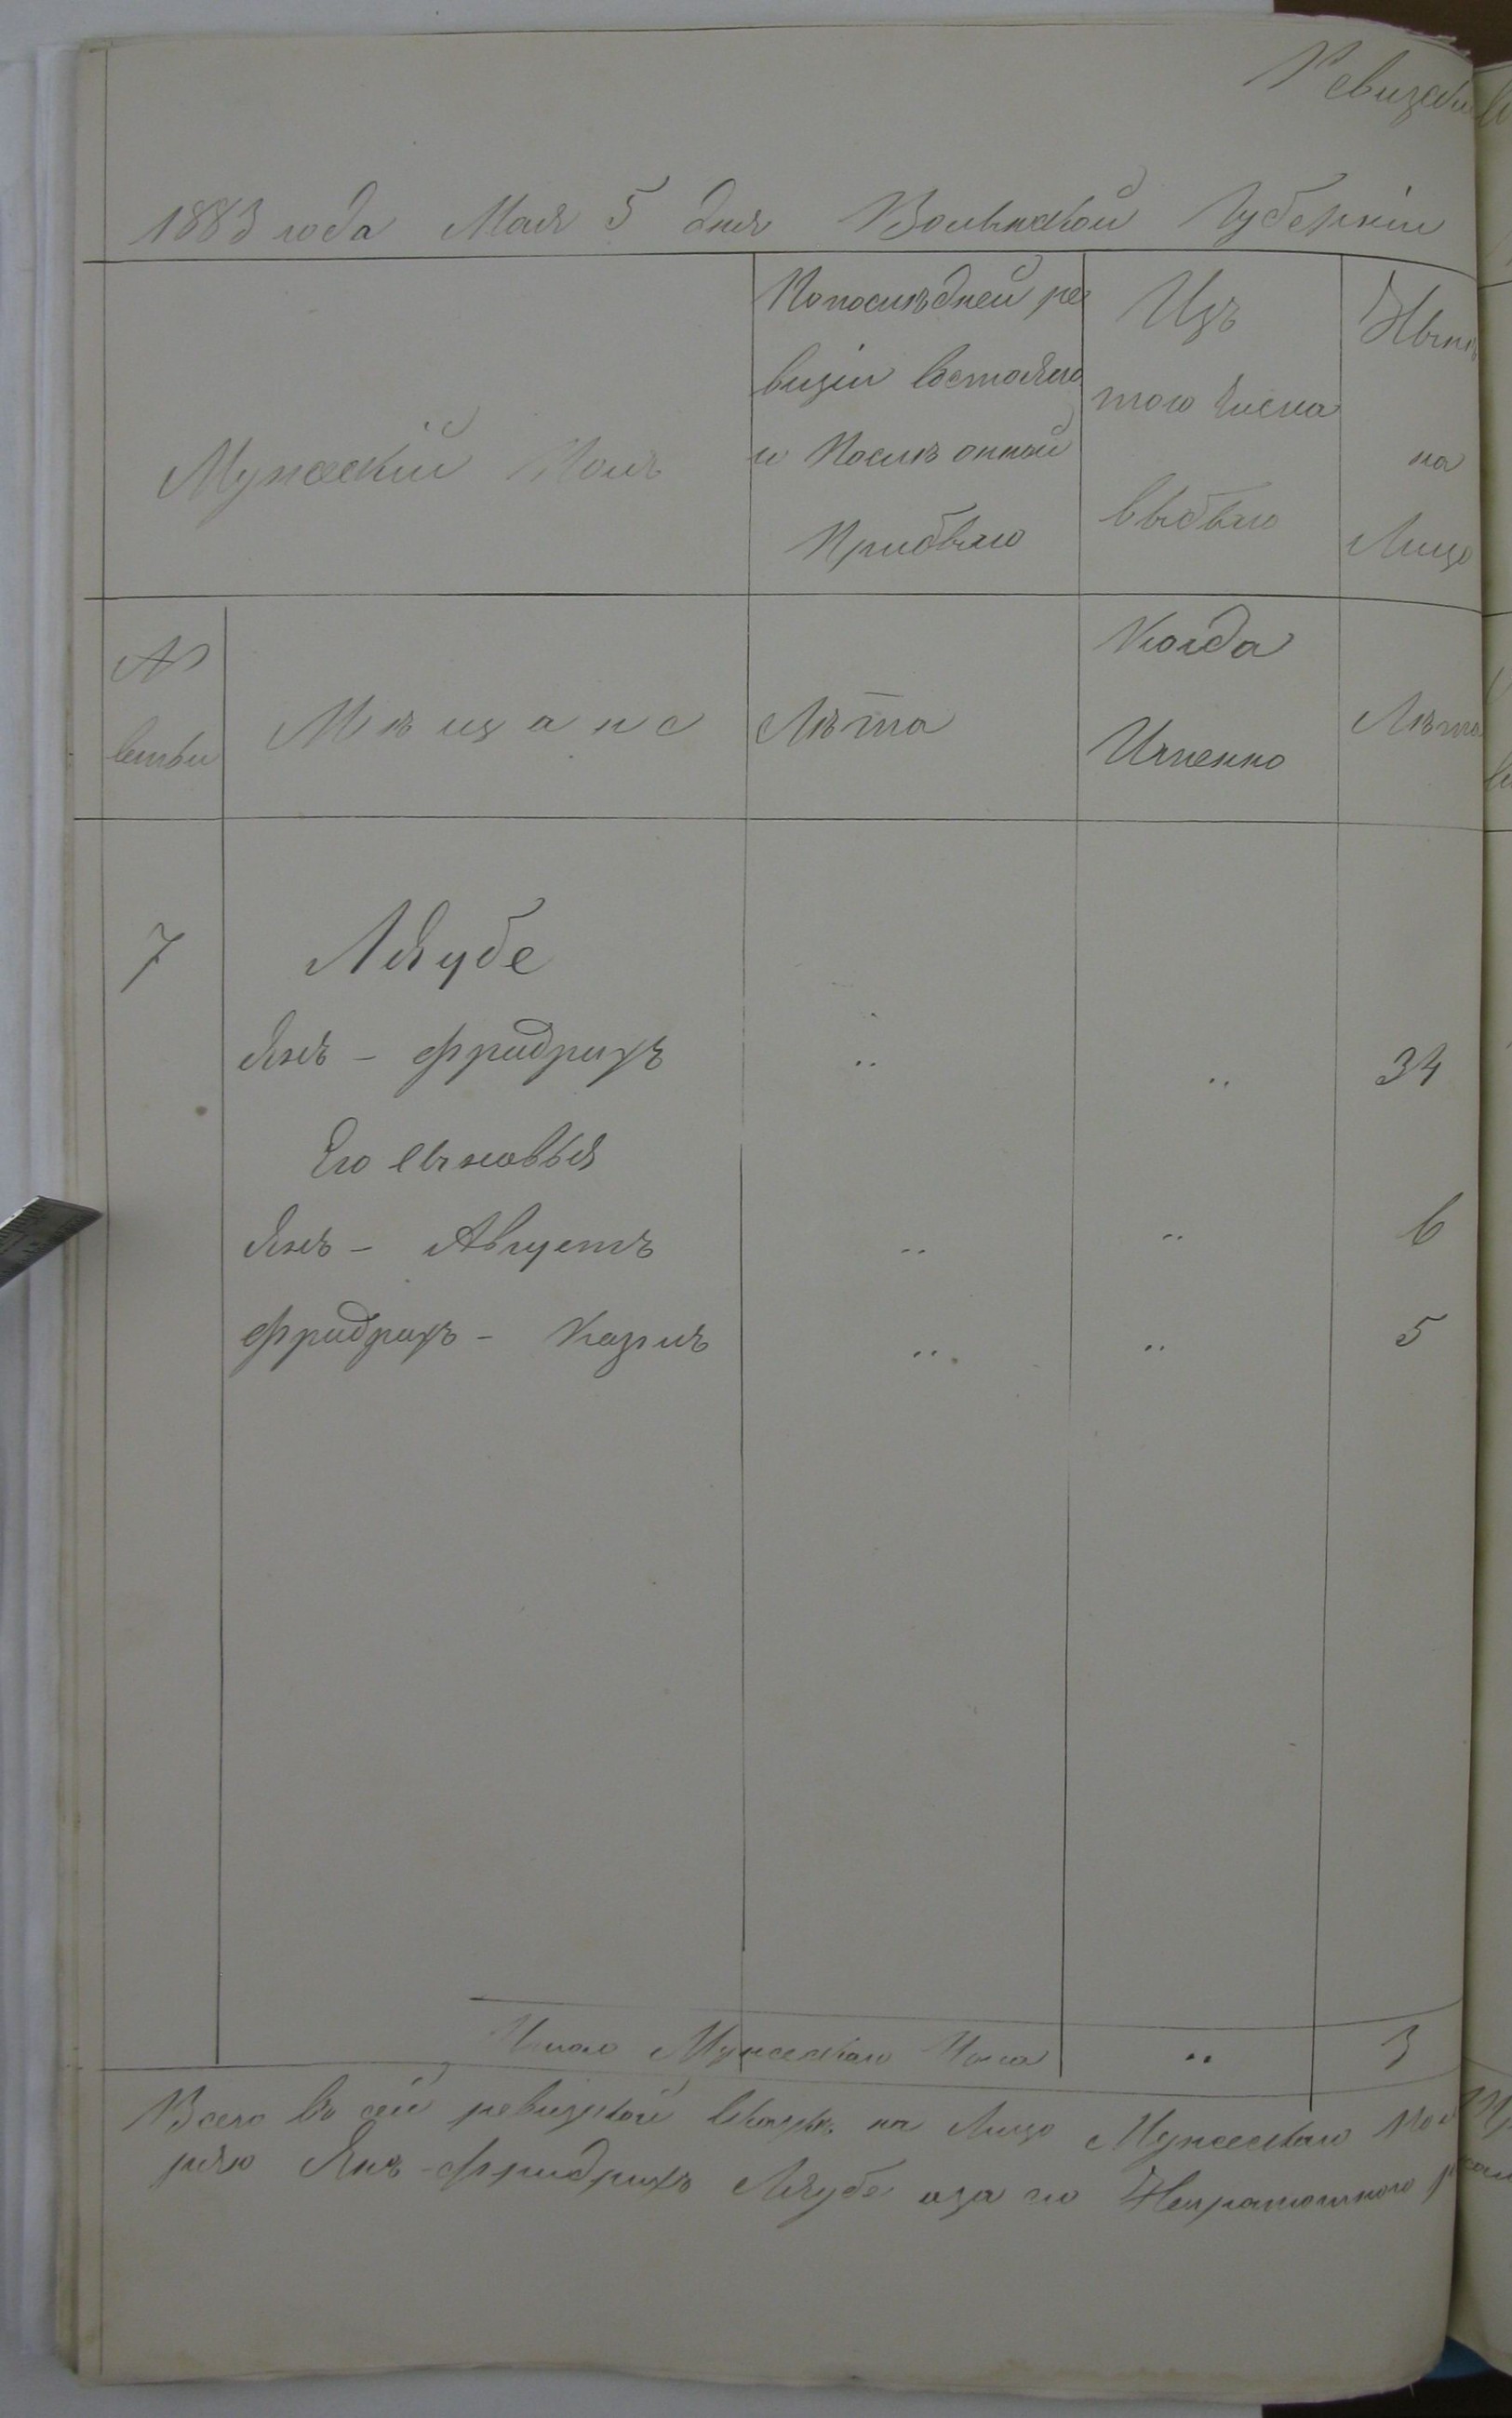 Ревизск
1883 года Мая 5 дня Волынской Губерніи
Мужескій Полъ
Попослѣдней ре
визіи Состояло
и Послѣ онной
Прибыло
Изъ
того Числа
выбыло
Нынѣ
на
Лицо
№
Семьи
Мѣщане
Лѣта
Когда
Именно
Лѣта
7 Ляубе
Янъ - Фридрихъ " " 34
Его сыновья
Янъ - Августъ " " 6
Фридрихъ - Карлъ " " 5
Число Мужескаго Пола " 3
Всего въ сей ревизской Сказкѣ на Лицо Мужескаго Пол
Янъ - Фридрихъ Ляубе аза его Неграмотного